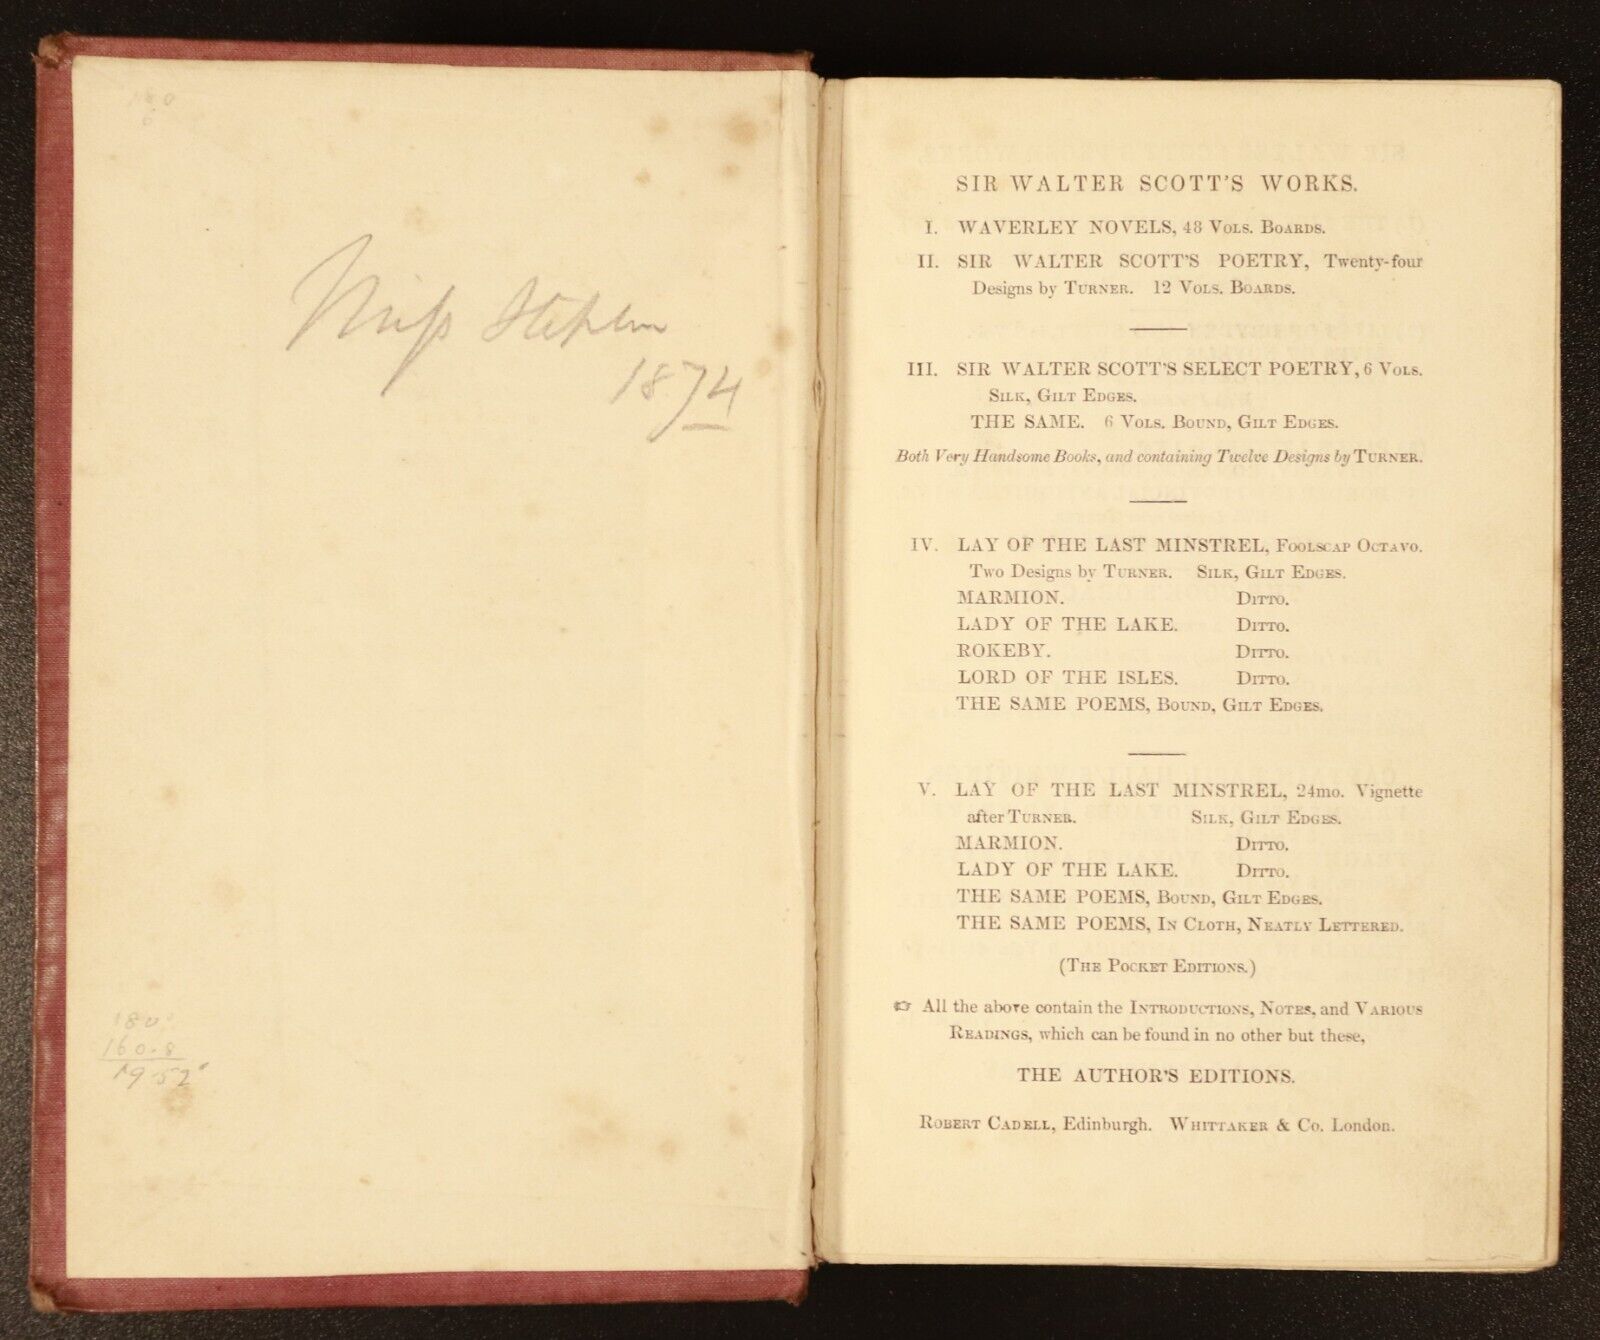 Miss Stephen
1874
180
160.8
19.52
SIR WALTER SCOTT'S WORKS.
I. WAVERLEY NOVELS, 48 VOLS. BOARDS.
II. SIR WALTER SCOTT'S POETRY, Twenty-four
Designs by TURNER. 12 VOLS. BOARDS.
III. SIR WALTER SCOTT'S SELECT POETRY, 6 VOLS.
SILK, GILT EDGES.
THE SAME. 6 VOLS. BOUND, GILT EDGES.
Both Very Handsome Books, and containing Twelve Designs by TURNER.
IV. LAY OF THE LAST MINSTREL, FOOLSCAP OCTAVO.
Two Designs by TURNER. SILK, GILT EDGES.
MARMION. DITTO.
LADY OF THE LAKE. DITTO.
ROKEBY. DITTO.
LORD OF THE ISLES. DITTO.
THE SAME POEMS, BOUND, GILT EDGES.
V. LAY OF THE LAST MINSTREL, 24mo. Vignette
after TURNER. SILK, GILT EDGES.
MARMION. DITTO.
LADY OF THE LAKE. DITTO.
THE SAME POEMS, BOUND, GILT EDGES.
THE SAME POEMS, IN CLOTH, NEATLY LETTERED.
(THE POCKET EDITIONS.)
☞ All the above contain the INTRODUCTIONS, NOTES, and VARIOUS
READINGS, which can be found in no other but these,
THE AUTHOR'S EDITIONS.
ROBERT CADELL, Edinburgh. WHITTAKER & CO. London.